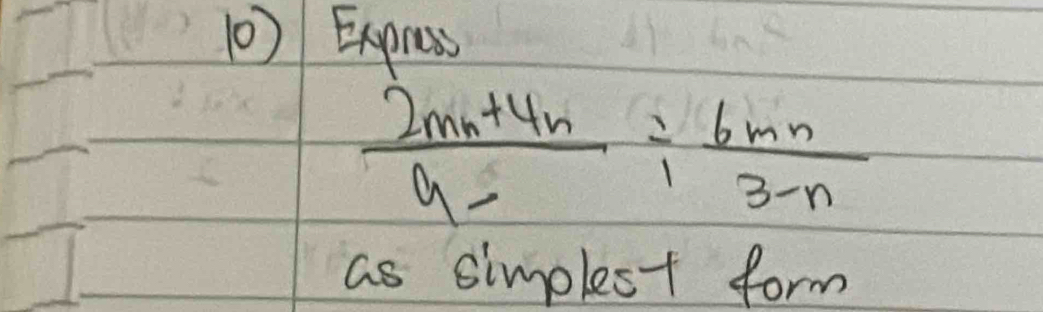 10) Express
2mn+4n / 9- ÷ 6mn / 3-n
as simplest form